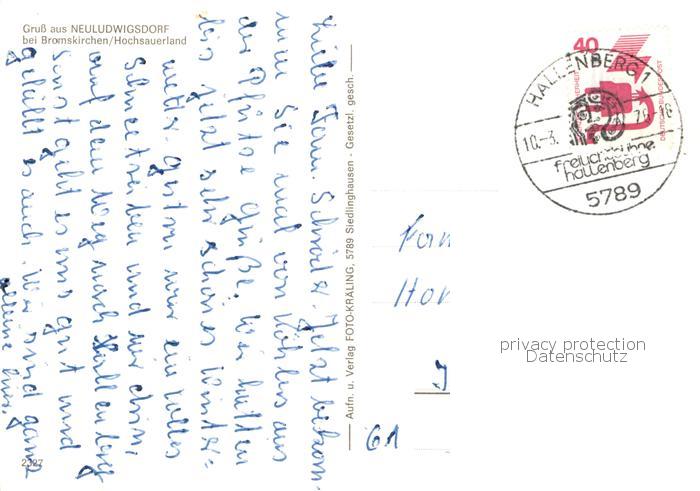 Gruß aus NEULUDWIGSDORF
bei Bromskirchen/Hochsauerland
Liebe Fam. Schröder. Jetzt bekom-
men Sie mal von Köhlers aus
der Pfütze Grüße. Wir hatten
bis jetzt sehr schönes Winter=
wetter gestern war ein tolles
Schneetreiben und wir drin,
auf dem Weg nach Hallenberg
sonst geht es uns gut und
gefällt es auch. Wir sind ganz
alleine hier.
2327
Aufn. u. Verlag FOTO-KRÄLING, 5789 Siedlinghausen - Gesetzl. gesch.
40
DEUTSCHE BUNDESPOST
HALLENBERG 1
10.-3. 76-18
freilichtbühne
hallenberg
5789
Fam
Hor
J
61
privacy protection
Datenschutz